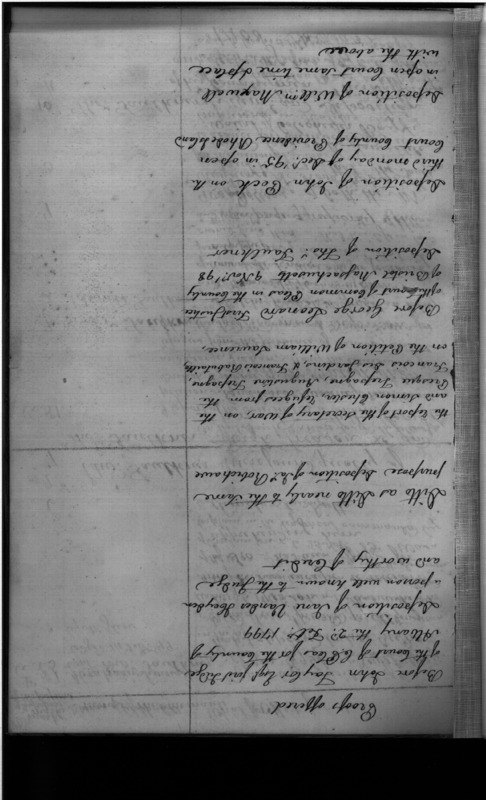 Proofs offered
Before John Taylor Esqr first Judge
of the Court of C Pleas for the County of
Albany the 2d Feb. 1799
Deposition of Jane Vander Heyden
a person well known to the Judge
and worthy of Credit
Ditto as Ditto nearly to the same
purpose Deposition of Jas Robichaux
the Report of the Secretary of War, on the
and Simon Chester, refugees from the
Trepagne, Augustine Trepagne,
Francois Des Jardins, & Francois
on the Petition of William Lawrence,
Before George Leonard first Justice
of the Court of Common Pleas in the County
of Bristol Massachusetts 9 Novr 98
Deposition of Thos Faulkner
Deposition of John Cock on the
third monday of Decr 95 in open
Court County of Providence Rhode Island
Deposition of Willm Maxwell
in open Court Same time & place
with the above